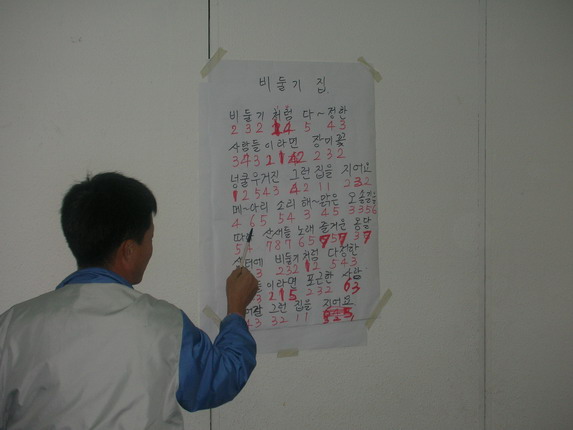 비둘기 집
비둘기 처럼 다~정한
2 3 2 4 5 4 3
사람들 이라면 장미꽃
3 4 3 2 1 2 2 3 2
넝쿨우거진 그런 집을 지어요
1 2 5 4 3 4 2 1 1 2 3 2
메~아리 소리 해~맑은 오솔길을
4 6 5 5 4 3 3 4 5 3 3 5 6
산새들 노래 즐거운 옹달
5 4 7 8 7 6 5 7 5 7 3 7
비둘기처럼 다정한
3 2 3 2 1 2 5 4 3
이라면 포근한 사람
3 2 1 5 2 3 2 6 3
그런 집을 지어요
4 3 3 2 1 1